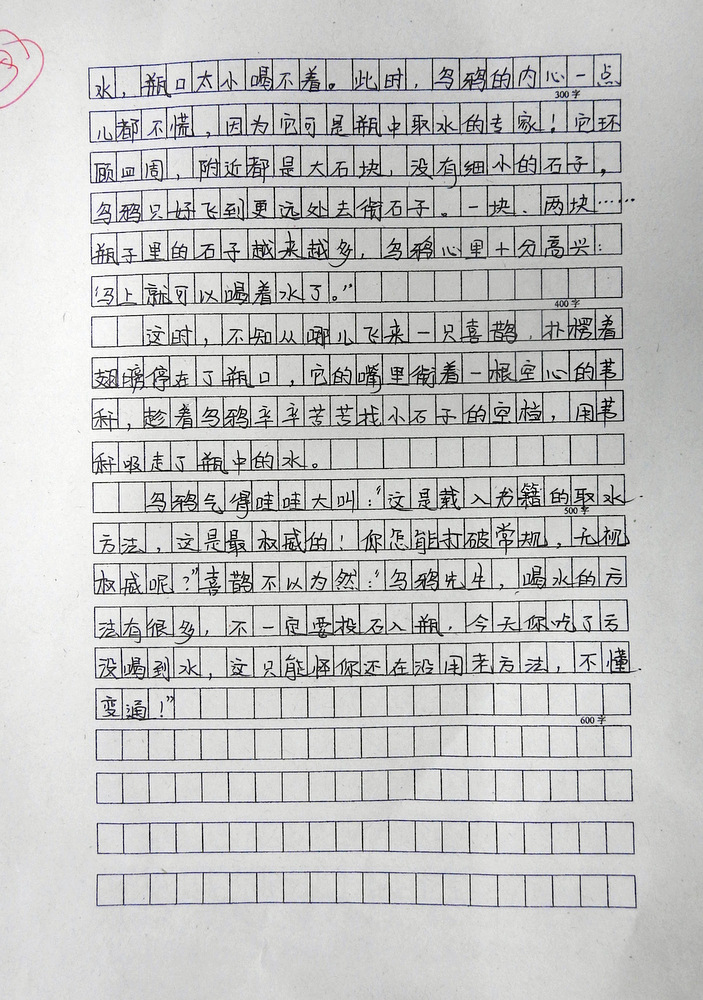 水，瓶口太小喝不着。此时，乌鸦的内心一点
300字
儿都不慌，因为它可是瓶中取水的专家！它环
顾四周，附近都是大石块，没有细小的石子，
乌鸦只好飞到更远处去衔石子。一块、两块……
瓶子里的石子越来越多，乌鸦心里十分高兴：
“马上就可以喝着水了。”
400字
这时，不知从哪儿飞来一只喜鹊，扑楞着
翅膀停在了瓶口，它的嘴里衔着一根空心的苇
秆，趁着乌鸦辛辛苦苦找小石子的空档，用苇
秆吸走了瓶中的水。
乌鸦气得哇哇大叫：“这是载入书籍的取水
500字
方法，这是最权威的！你怎能打破常规，无视
权威呢？”喜鹊不以为然：“乌鸦先生，喝水的方
法有很多，不一定要投石入瓶，今天你吃了亏
没喝到水，这只能怪你还在沿用老方法，不懂
变通！”
600字